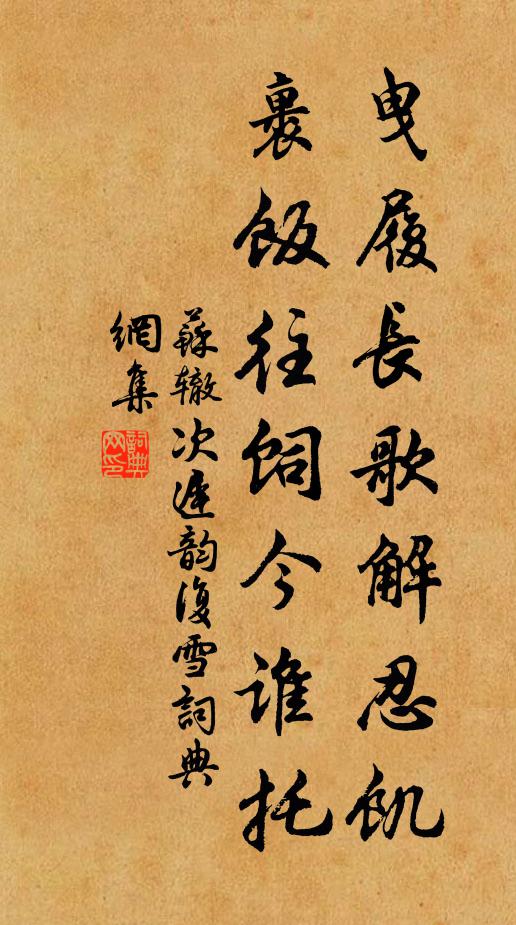 曳履長歌解忍飢
裹飯往飼今谁托
蘇辙次遲韵復雪詞典
網集
詞典网印